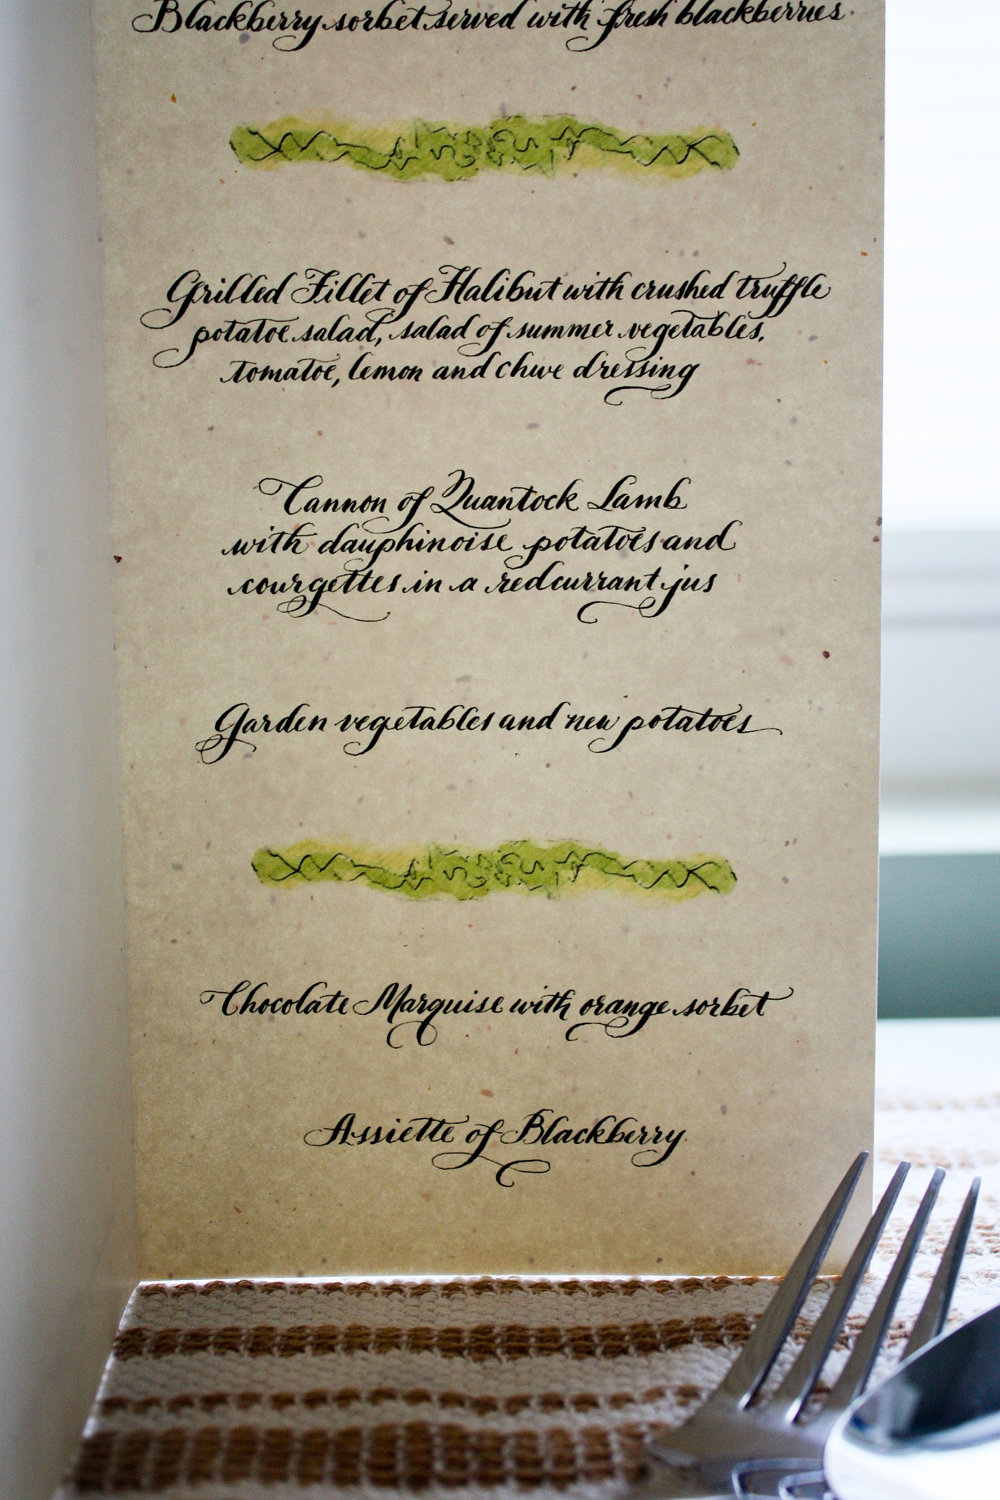 Blackberry sorbet served with fresh blackberries.
Grilled Fillet of Halibut with crushed truffle
potatoe salad, salad of summer vegetables,
tomatoe, lemon and chive dressing
Cannon of Quantock Lamb
with dauphinoise potatoes and
courgettes in a redcurrant jus
Garden vegetables and new potatoes
Chocolate Marquise with orange sorbet
Assiette of Blackberry